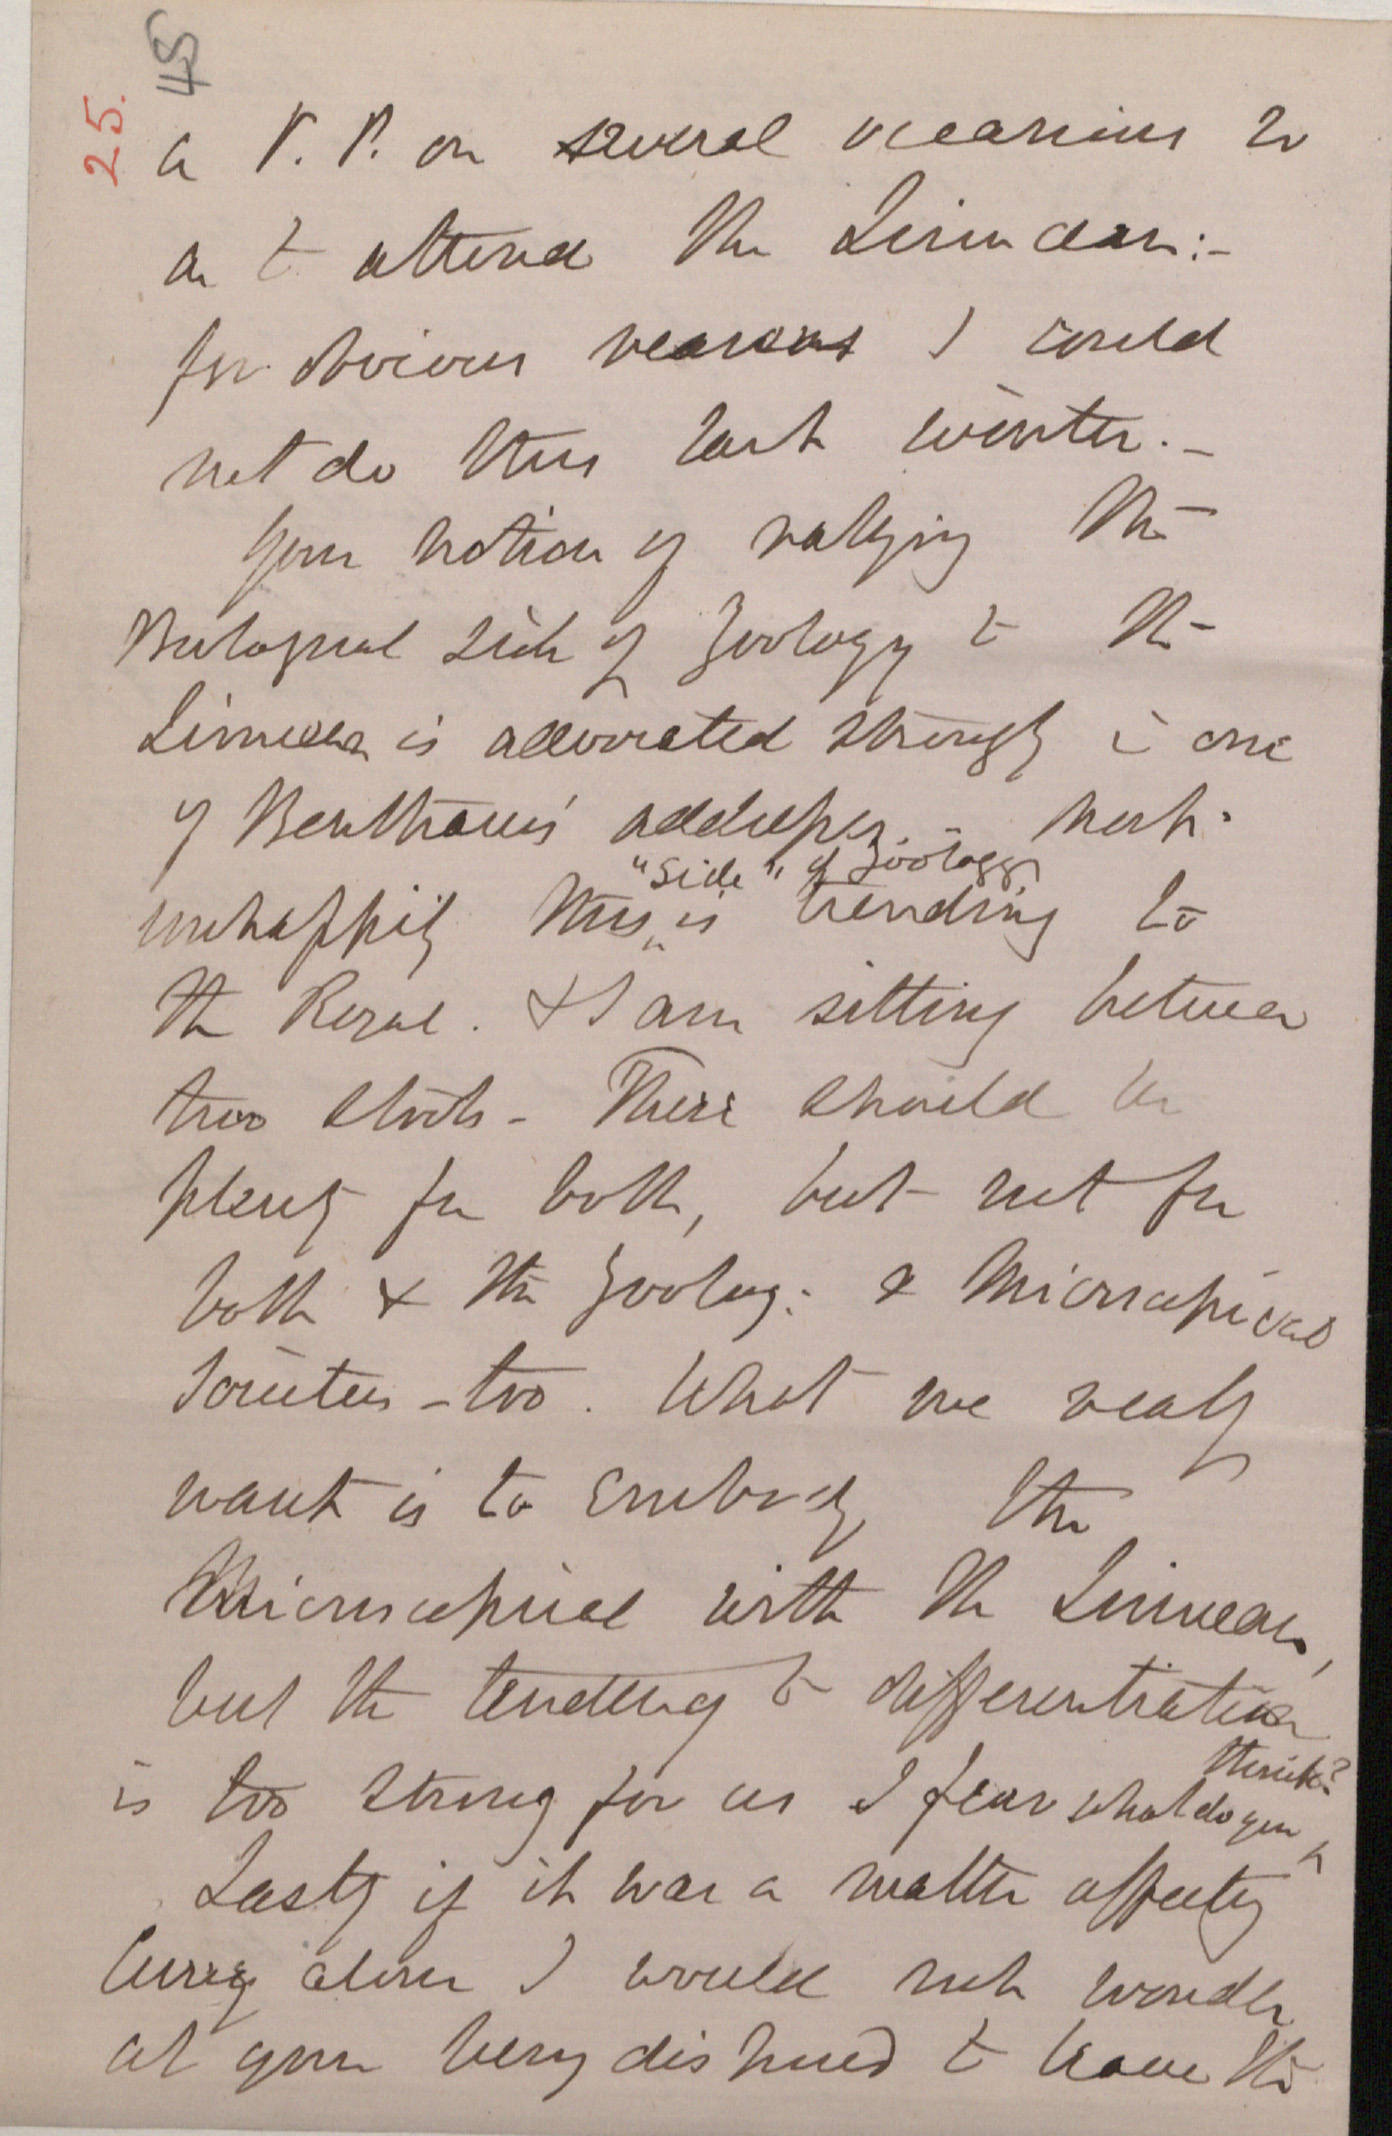 45
25.
a V.P. on several occasions so
as to attend the Linnean:-
for obvious reasons I could
not do this last winter. -
Your notion of rallying the
Biological side of Zoology to the
Linnean is advocated strongly in one
of Bentham's addresses. - most
"side" of Zoology
unhappily this is trending to
the Royal. & I am sitting between
two stools - There should be
plenty for both, but not for
both & the Zoolog: & Microscopical
Societies - too. What we really
want is to embody the
Microscopical with the Linnean,
but the tendency to differentiation
think?
is too strong for us I fear what do you
Lastly if it was a matter affecting
Currey alone I would not wonder
at your being disposed to leave the